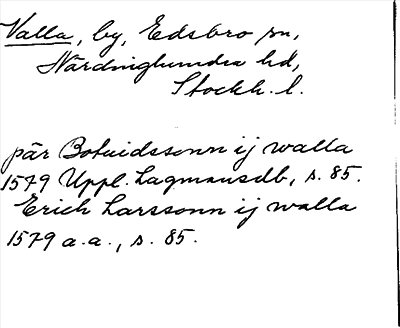 Valla, by, Edsbro sn,
Närdinghundra hd,
Stockh. l.
pär Botuidssonn ij walla
1579 Uppl. Lagmansdb, s. 85.
Erich Larssonn ij walla
1579 a.a., s. 85.